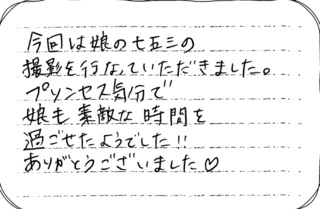 今回は娘の七五三の
撮影を行なっていただきました。
プリンセス気分で
娘も素敵な時間を
過ごせたようでした!!
ありがとうございました♡